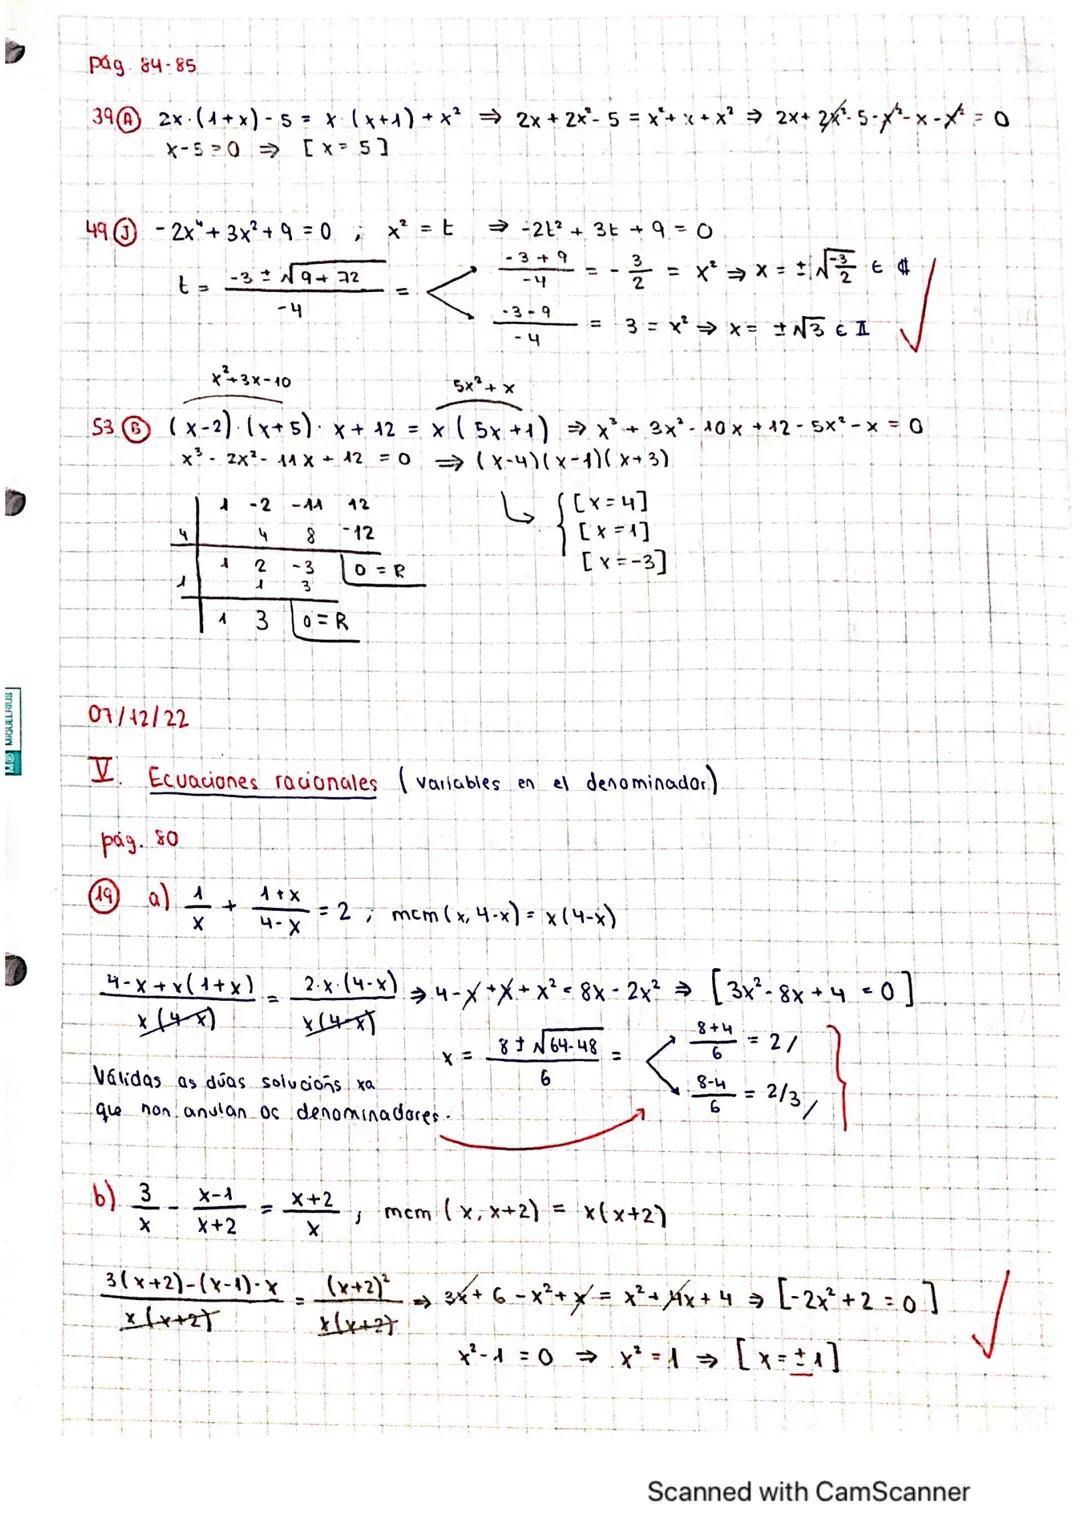 pág. 84-85
39 A 2x·(1+x)-5 = x·(x+1)+x² ⇒ 2x+2x²-5 = x²+x+x² ⇒ 2x+2x²-5-x²-x-x² = 0
x-5=0 ⇒ [x=5]
49 J -2x⁴+3x²+9=0 ; x²=t ⇒ -2t²+3t+9=0
t = (-3±√(9+72))/-4 = (-3+9)/-4 = -3/2 = x² ⇒ x = ±√(-3/2) ∈ ₵
(-3-9)/-4 = 3 = x² ⇒ x = ±√3 ∈ II
x²+3x-10 5x²+x
53 B (x-2)·(x+5)·x+12 = x(5x+1) ⇒ x³+3x²-10x+12-5x²-x=0
x³-2x²-11x+12=0 ⇒ (x-4)(x-1)(x+3)
1 -2 -11 12
4 4 8 -12
1 2 -3 0=R
1 1 3
1 3 0=R
[x=4]
[x=1]
[x=-3]
MQ MIQUELRIUS
07/12/22
V. Ecuaciones racionales (variables en el denominador)
pág. 80
19 a) 1/x + (1+x)/(4-x) = 2 ; mcm(x,4-x) = x(4-x)
(4-x+x(1+x))/(x(4-x)) = (2·x·(4-x))/(x(4-x)) ⇒ 4-x+x+x² = 8x-2x² ⇒ [3x²-8x+4=0]
x = (8±√(64-48))/6 = (8+4)/6 = 2/
(8-4)/6 = 2/3/
Válidas as dúas solucións xa
que non anulan os denominadores.
b) 3/x - (x-1)/(x+2) = (x+2)/x ; mcm(x,x+2) = x(x+2)
(3(x+2)-(x-1)·x)/(x(x+2)) = (x+2)²/(x(x+2)) ⇒ 3x+6-x²+x = x²+4x+4 ⇒ [-2x²+2=0]
x²-1=0 ⇒ x²=1 ⇒ [x=±1]
Scanned with CamScanner